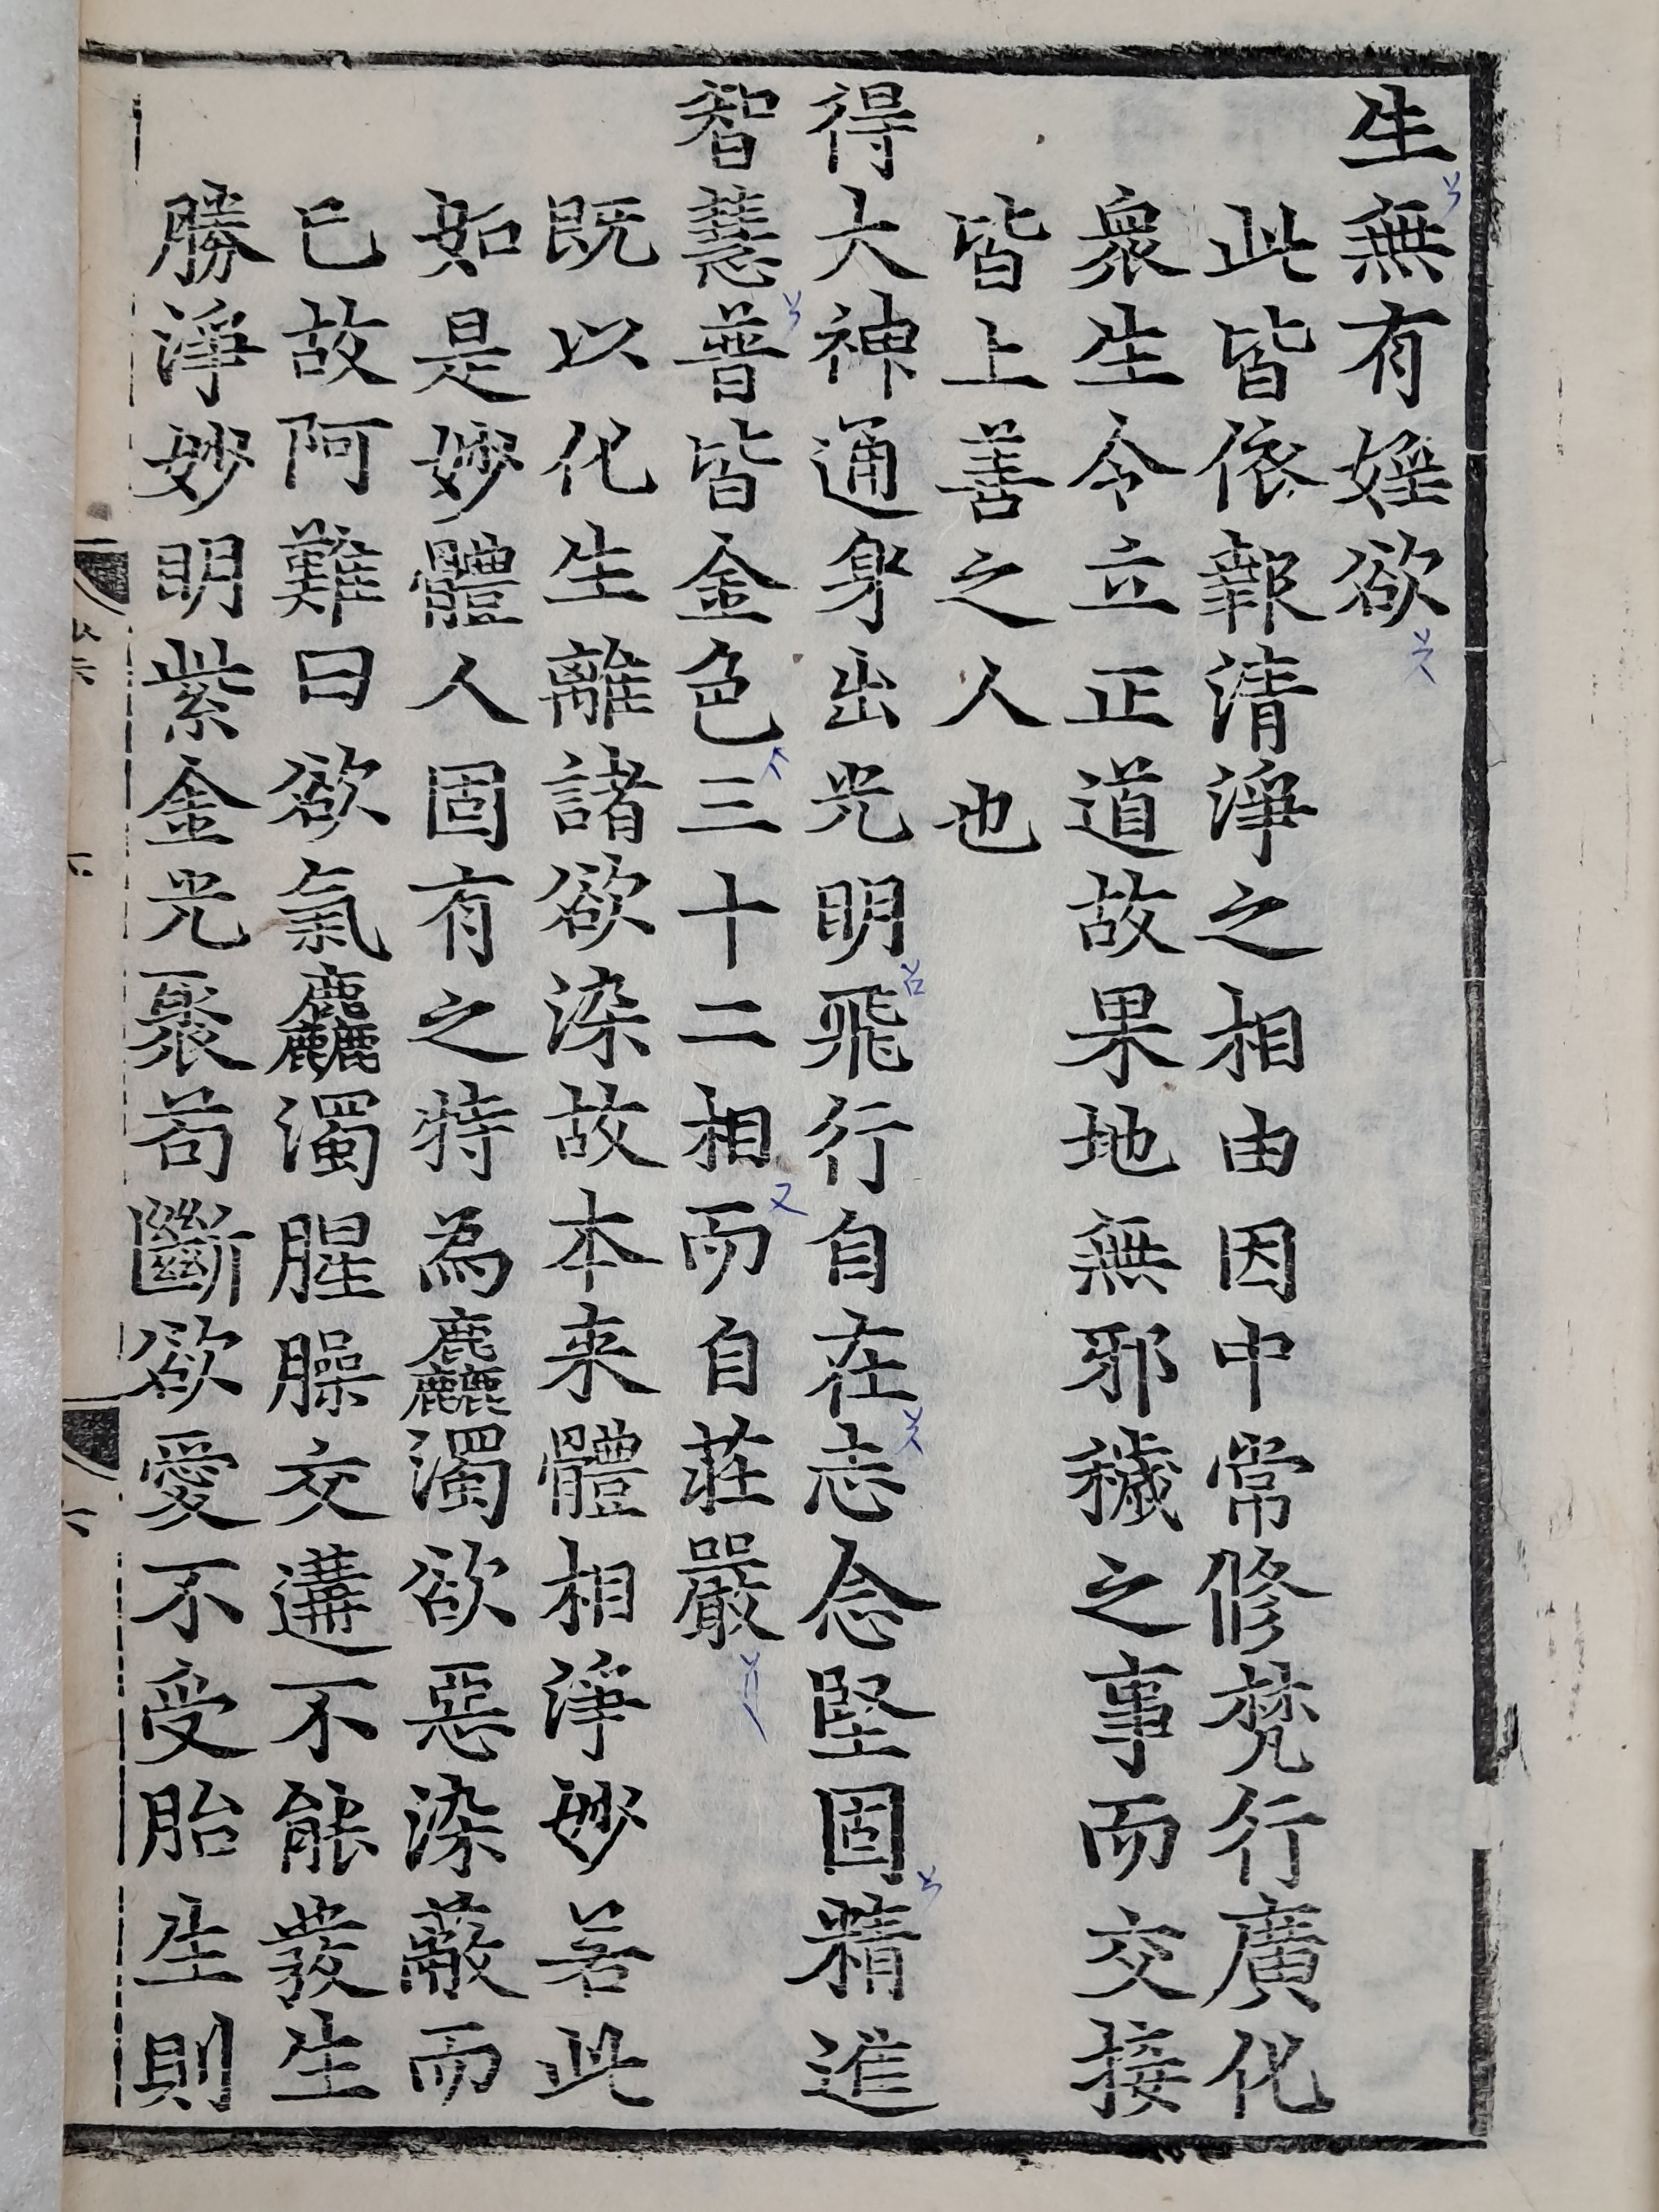 生無有婬欲
此皆依報清淨之相由因中常修梵行廣化
衆生令立正道故果地無邪穢之事而交接
皆上善之人也
得大神通身出光明飛行自在志念堅固精進
智慧普皆金色三十二相而自莊嚴
既以化生離諸欲染故本来體相淨妙若此
如是妙體人固有之特為麤濁欲惡染蔽而
已故阿難曰欲氣麤濁腥臊交遘不能發生
勝淨妙明紫金光聚苟斷欲愛不受胎生則